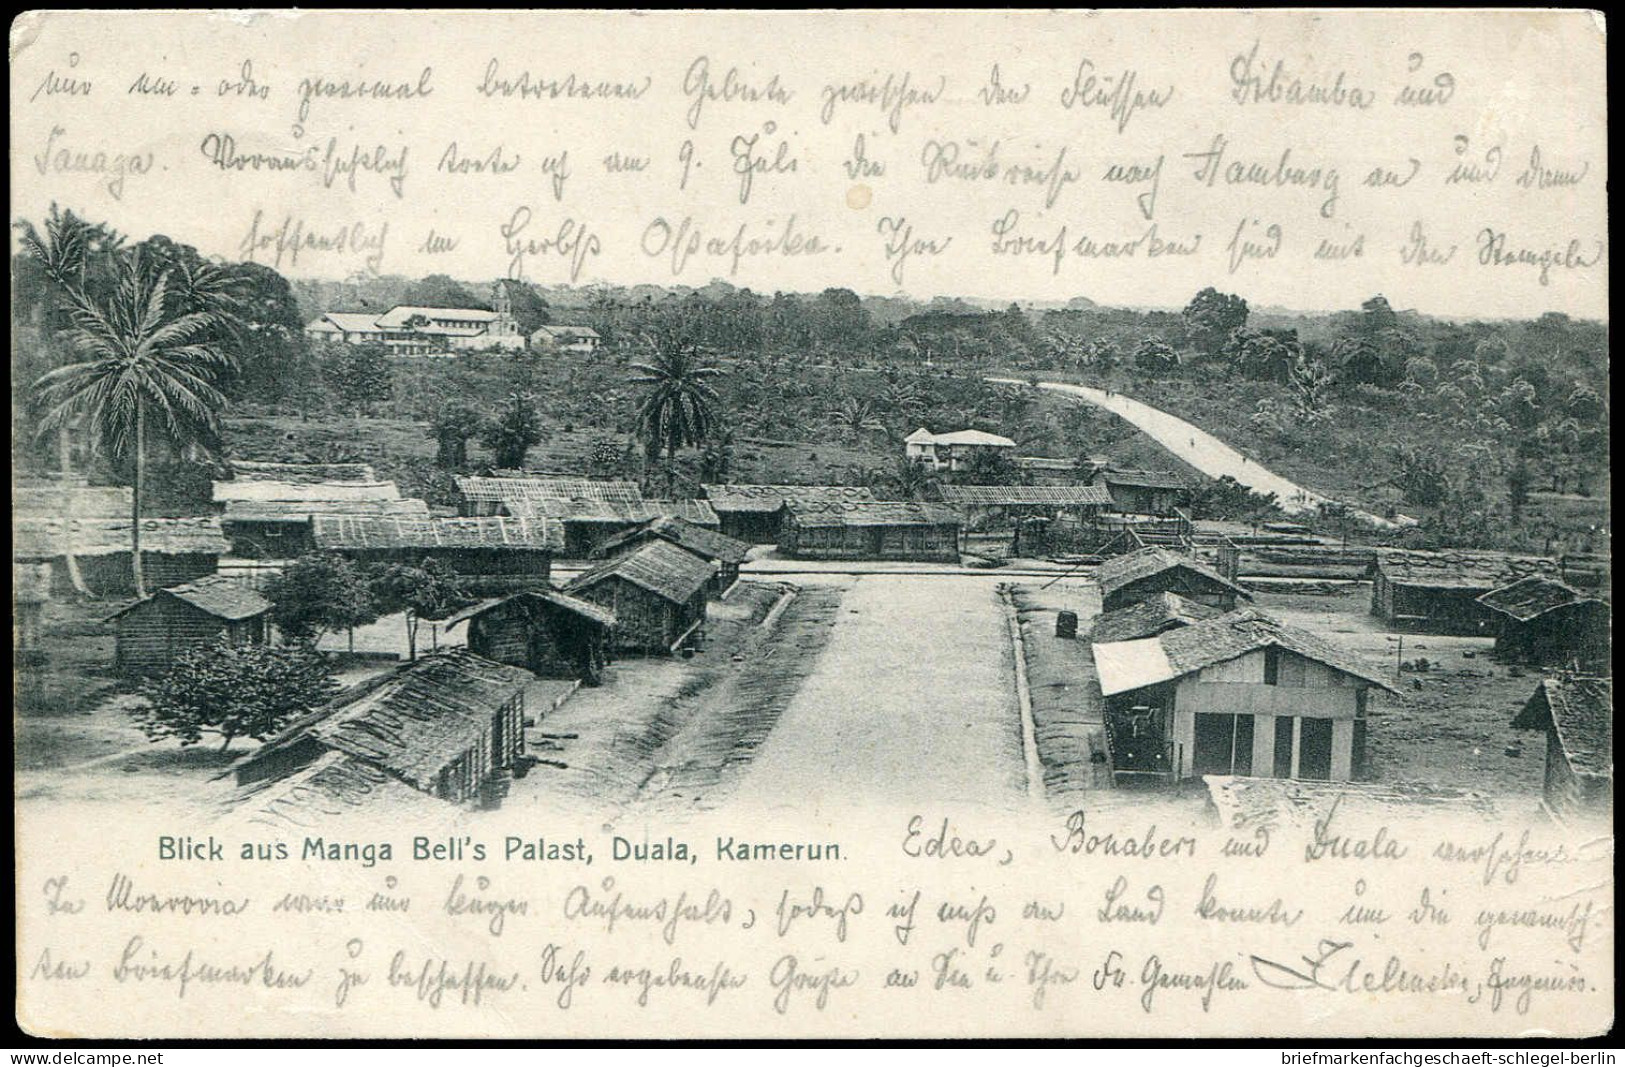 nur ein- oder zweimal betretenen Gebiete zwischen den Flüssen Dibamba und
Sanaga. Voraussichtlich trete ich am 9. Juli die Rückreise nach Hamburg an und dann
hoffentlich im Herbst Ostafrika. Ihre Briefmarken sind mit den Stempeln
Blick aus Manga Bell's Palast, Duala, Kamerun.
Edea, Bonaberi und Duala versehen.
In Monrovia war nur kurzer Aufenthalt, sodaß ich nicht an Land konnte um die gewünsch-
ten Briefmarken zu beschaffen. Sehr ergebenste Grüße an Sie u. Ihre Fr. Gemahlin Ingenieur.
briefmarkenfachgeschaeft-schlegel-berlin